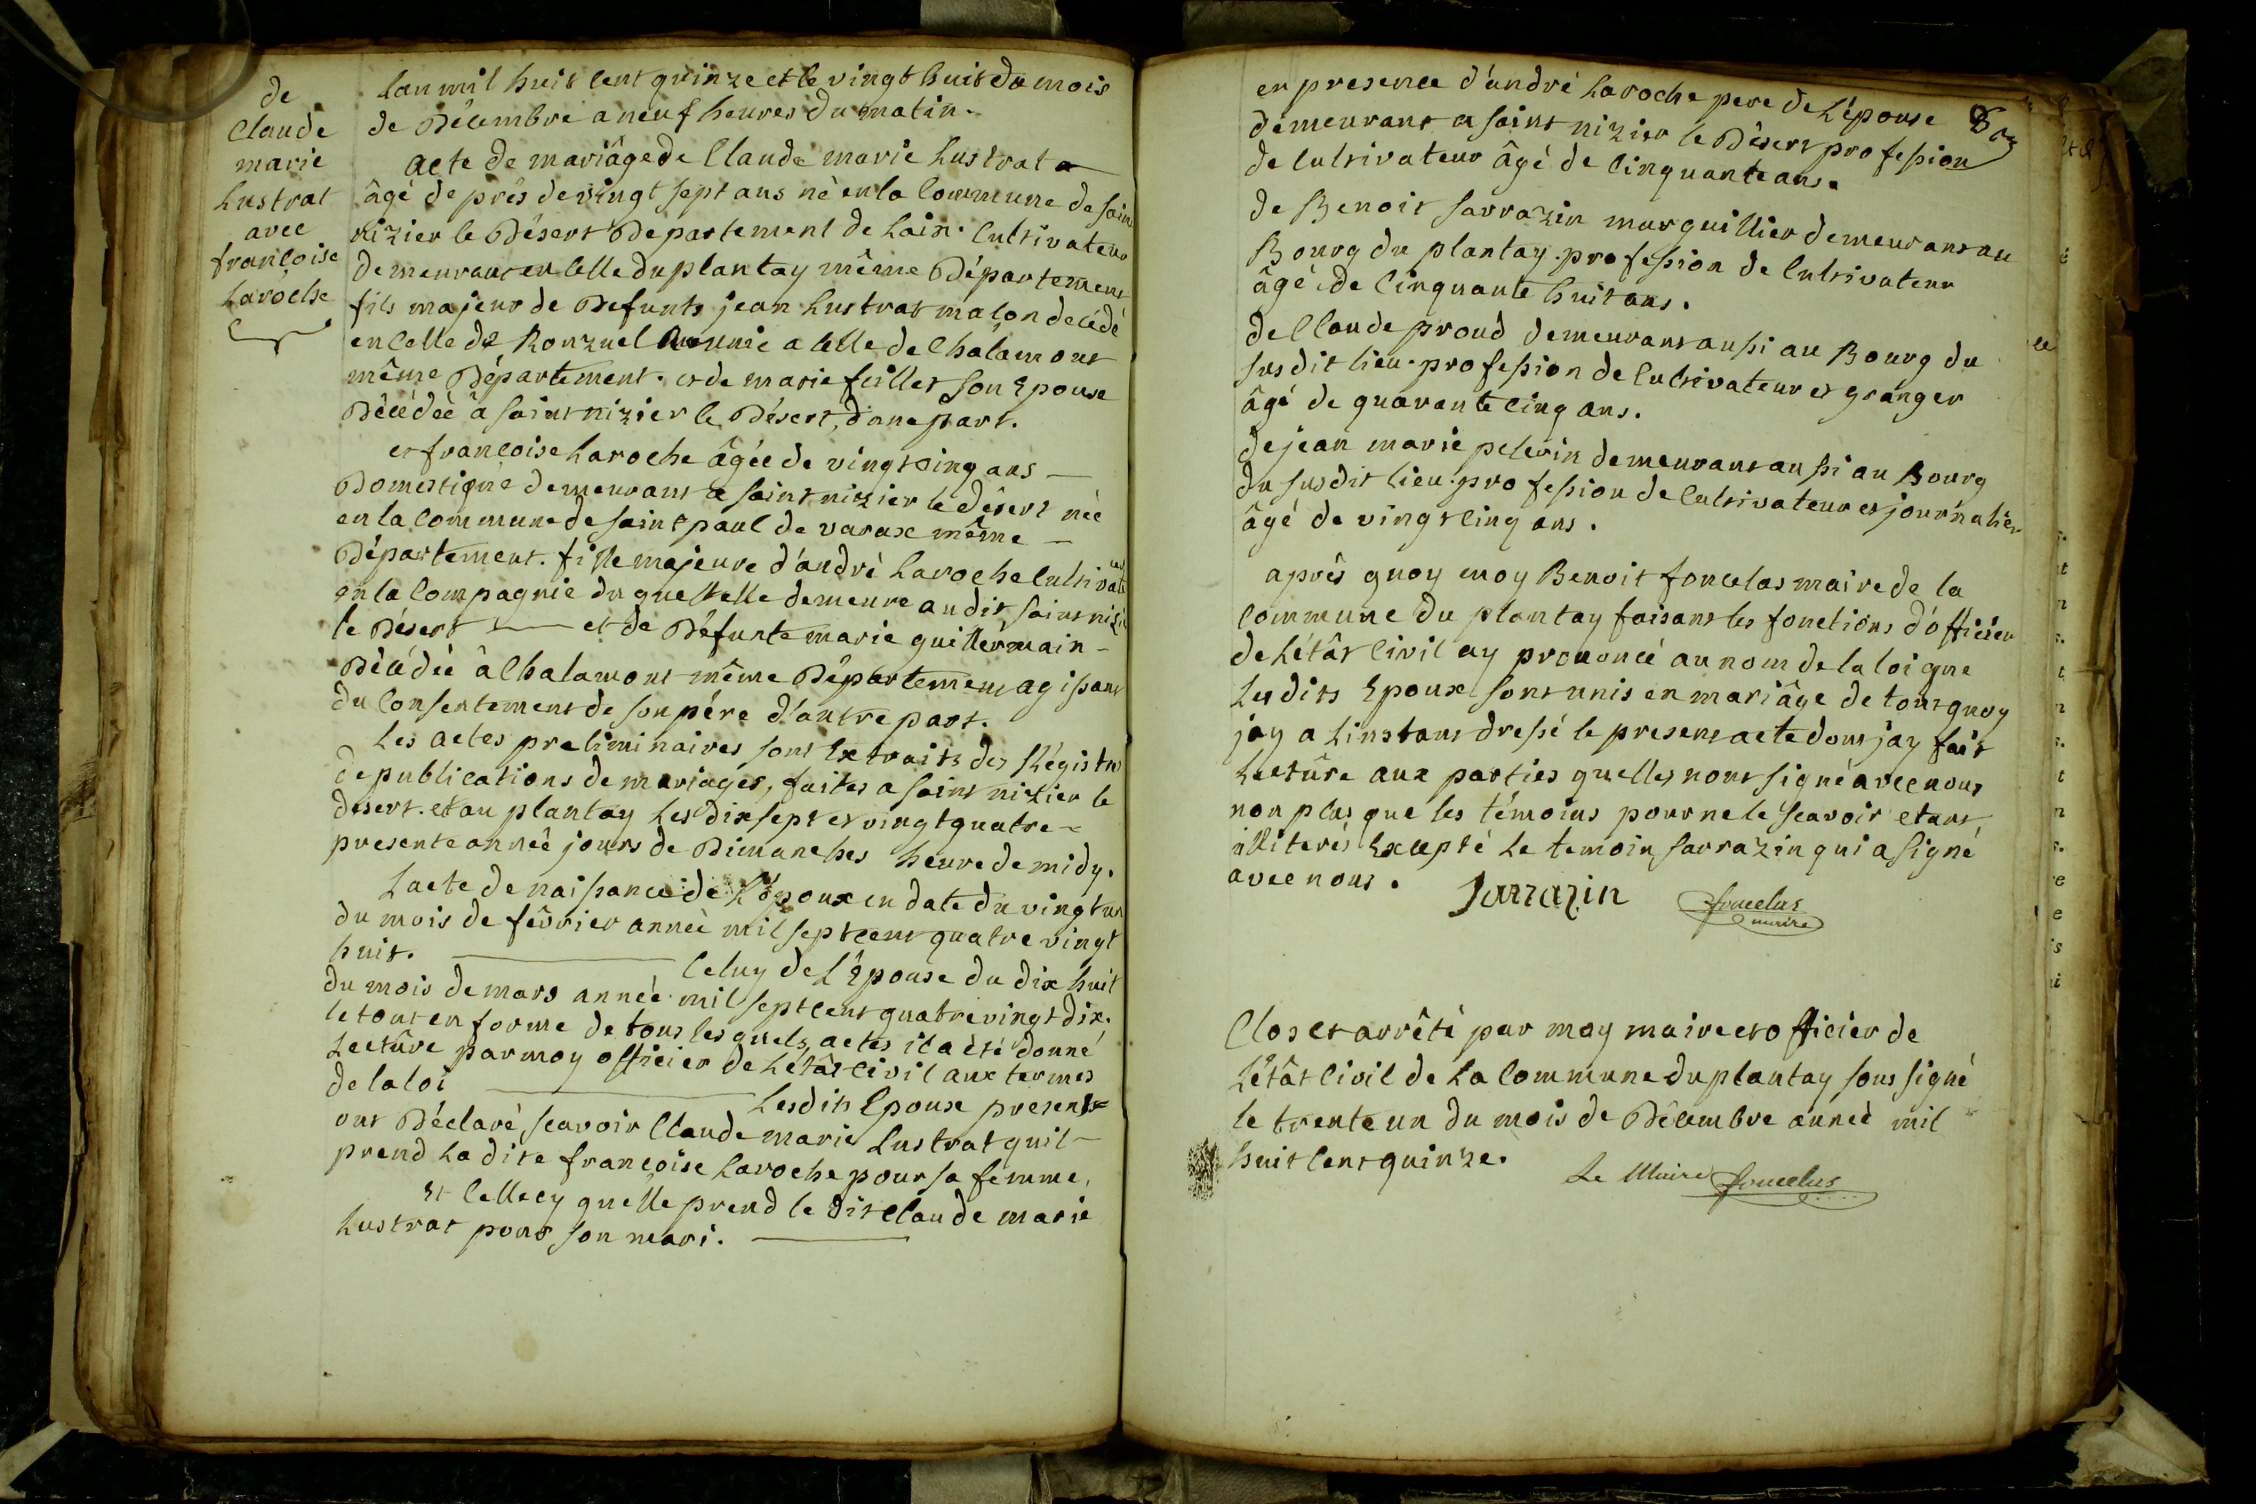 de
Claude
marie
Lustrat
avec
françoise
Laroche
Lan mil huit cent quinze et le vingt huit du mois
de Décembre a neuf heures du matin.
acte de mariâge de Claude marie Lustrat
âgé de près de vingt sept ans né en la Commune de saint
nizier le Désert Département de Lain. Cultivateur
demeurant en Celle du plantay même Département
fils majeur de Defunts jean Lustrat maçon décédé
en Celle de Ronzuel Reunie a Celle de Chalamont
même Département. et de marie feillet son Epouse
Décédée â saint nizier le Désert, dune part.
et françoise Laroche âgée de vingt cinq ans
Domestique demeurant a saint nizier le désert née
en la Commune de saint paul de varax même
Département. fille majeure d'andré Laroche Cultivateur
en la Compagnie du quel elle demeure au dit saint nizier
le Désert et de Défunte marie guillermain
Décédée â Chalamont même Département agissant
du Consentement de son père d'autre part.
Les actes preliminaires sont Extraits des Régistres
de publications de mariages, faites a saint nizier le
desert. et au plantay Les dix sept et vingt quatre
presente année jours de Dimanches heure de midy.
Lacte de naissance de L'époux en date du vingt un
du mois de février année mil sept cent quatre vingt
huit. Celuy de l'Epouse du dix huit
du mois de mars année mil sept cent quatre vingt dix.
le tout en forme de tous les quels actes il a été donné
Lectûre par moy officier de Létât Civil aux termes
de la loi Lesdits Epoux presents
ont Déclaré, scavoir Claude marie Lustrat quil
prend La dite françoise Laroche pour sa femme,
Et Celle cy quelle prend le dit claude marie
Lustrat pour son mari.
en presence d'andré Laroche pere de L'épouse
demeurant a saint nizier le Désert profession
de Cultivateur âgé de Cinquante ans.
de Benoit sarrazin marguillier demeurant au
Bourg du plantay. profession de Cultivateur
âgé de Cinquante huit ans.
de Claude proud demeurant aussi au Bourg du
susdit lieu. profession de Cultivateur et granger
âgé de quarante cinq ans.
de jean marie pelerin demeurant aussi au Bourg
du susdit lieu. profession de Cultivateur et journalier
âgé de vingt Cinq ans.
après quoy moy Benoit foncelas maire de la
Commune du plantay faisant les fonctions d'officier
de Létât Civil ay prononcé au nom de la loi que
Les dits Epoux sont unis en mariâge de tout quoy
jay a Linstant dressé le present acte dont jay fait
Lectûre aux parties quelles nont signé avec nous
non plus que les témoins pour ne le scavoir etant
illiterés Excepté Le temoin sarrazin qui a signé
avec nous. Sarrazin foncelus
maire
Clos et arrêté par moy maire et officier de
L'étât Civil de La Commune du plantay sous signé
le trente un du mois de Décembre année mil
huit Cent quinze. Le Maire foncelus